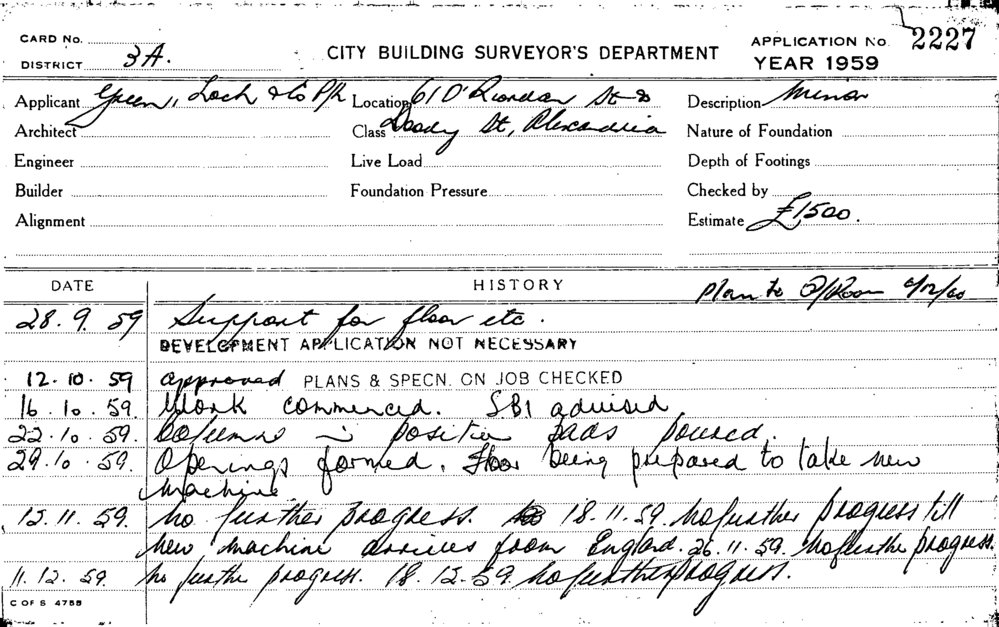 CARD No.
DISTRICT 3A.
CITY BUILDING SURVEYOR'S DEPARTMENT
APPLICATION No. 2227
YEAR 1959
Applicant Green, Loch & Co P/L Location 61 O'Riordan St &
Description Minor
Architect Class Doody St, Alexandria
Nature of Foundation
Engineer Live Load
Depth of Footings
Builder Foundation Pressure
Checked by
Alignment
Estimate £1,500.
DATE HISTORY
Plan to P/Room
28.9.59 Support for floor etc.
DEVELOPMENT APPLICATION NOT NECESSARY
12.10.59 approved PLANS & SPECN. ON JOB CHECKED
16.10.59. Work commenced. SB1 advised
22.10.59. Columns in position pads poured.
29.10.59. Openings formed. Floor being prepared to take new
machine.
13.11.59. No further progress. 18.11.59. No further progress till
new machine arrives from England. 26.11.59. No further progress.
11.12.59. No further progress. 18.12.59. No further progress.
C OF S 4755